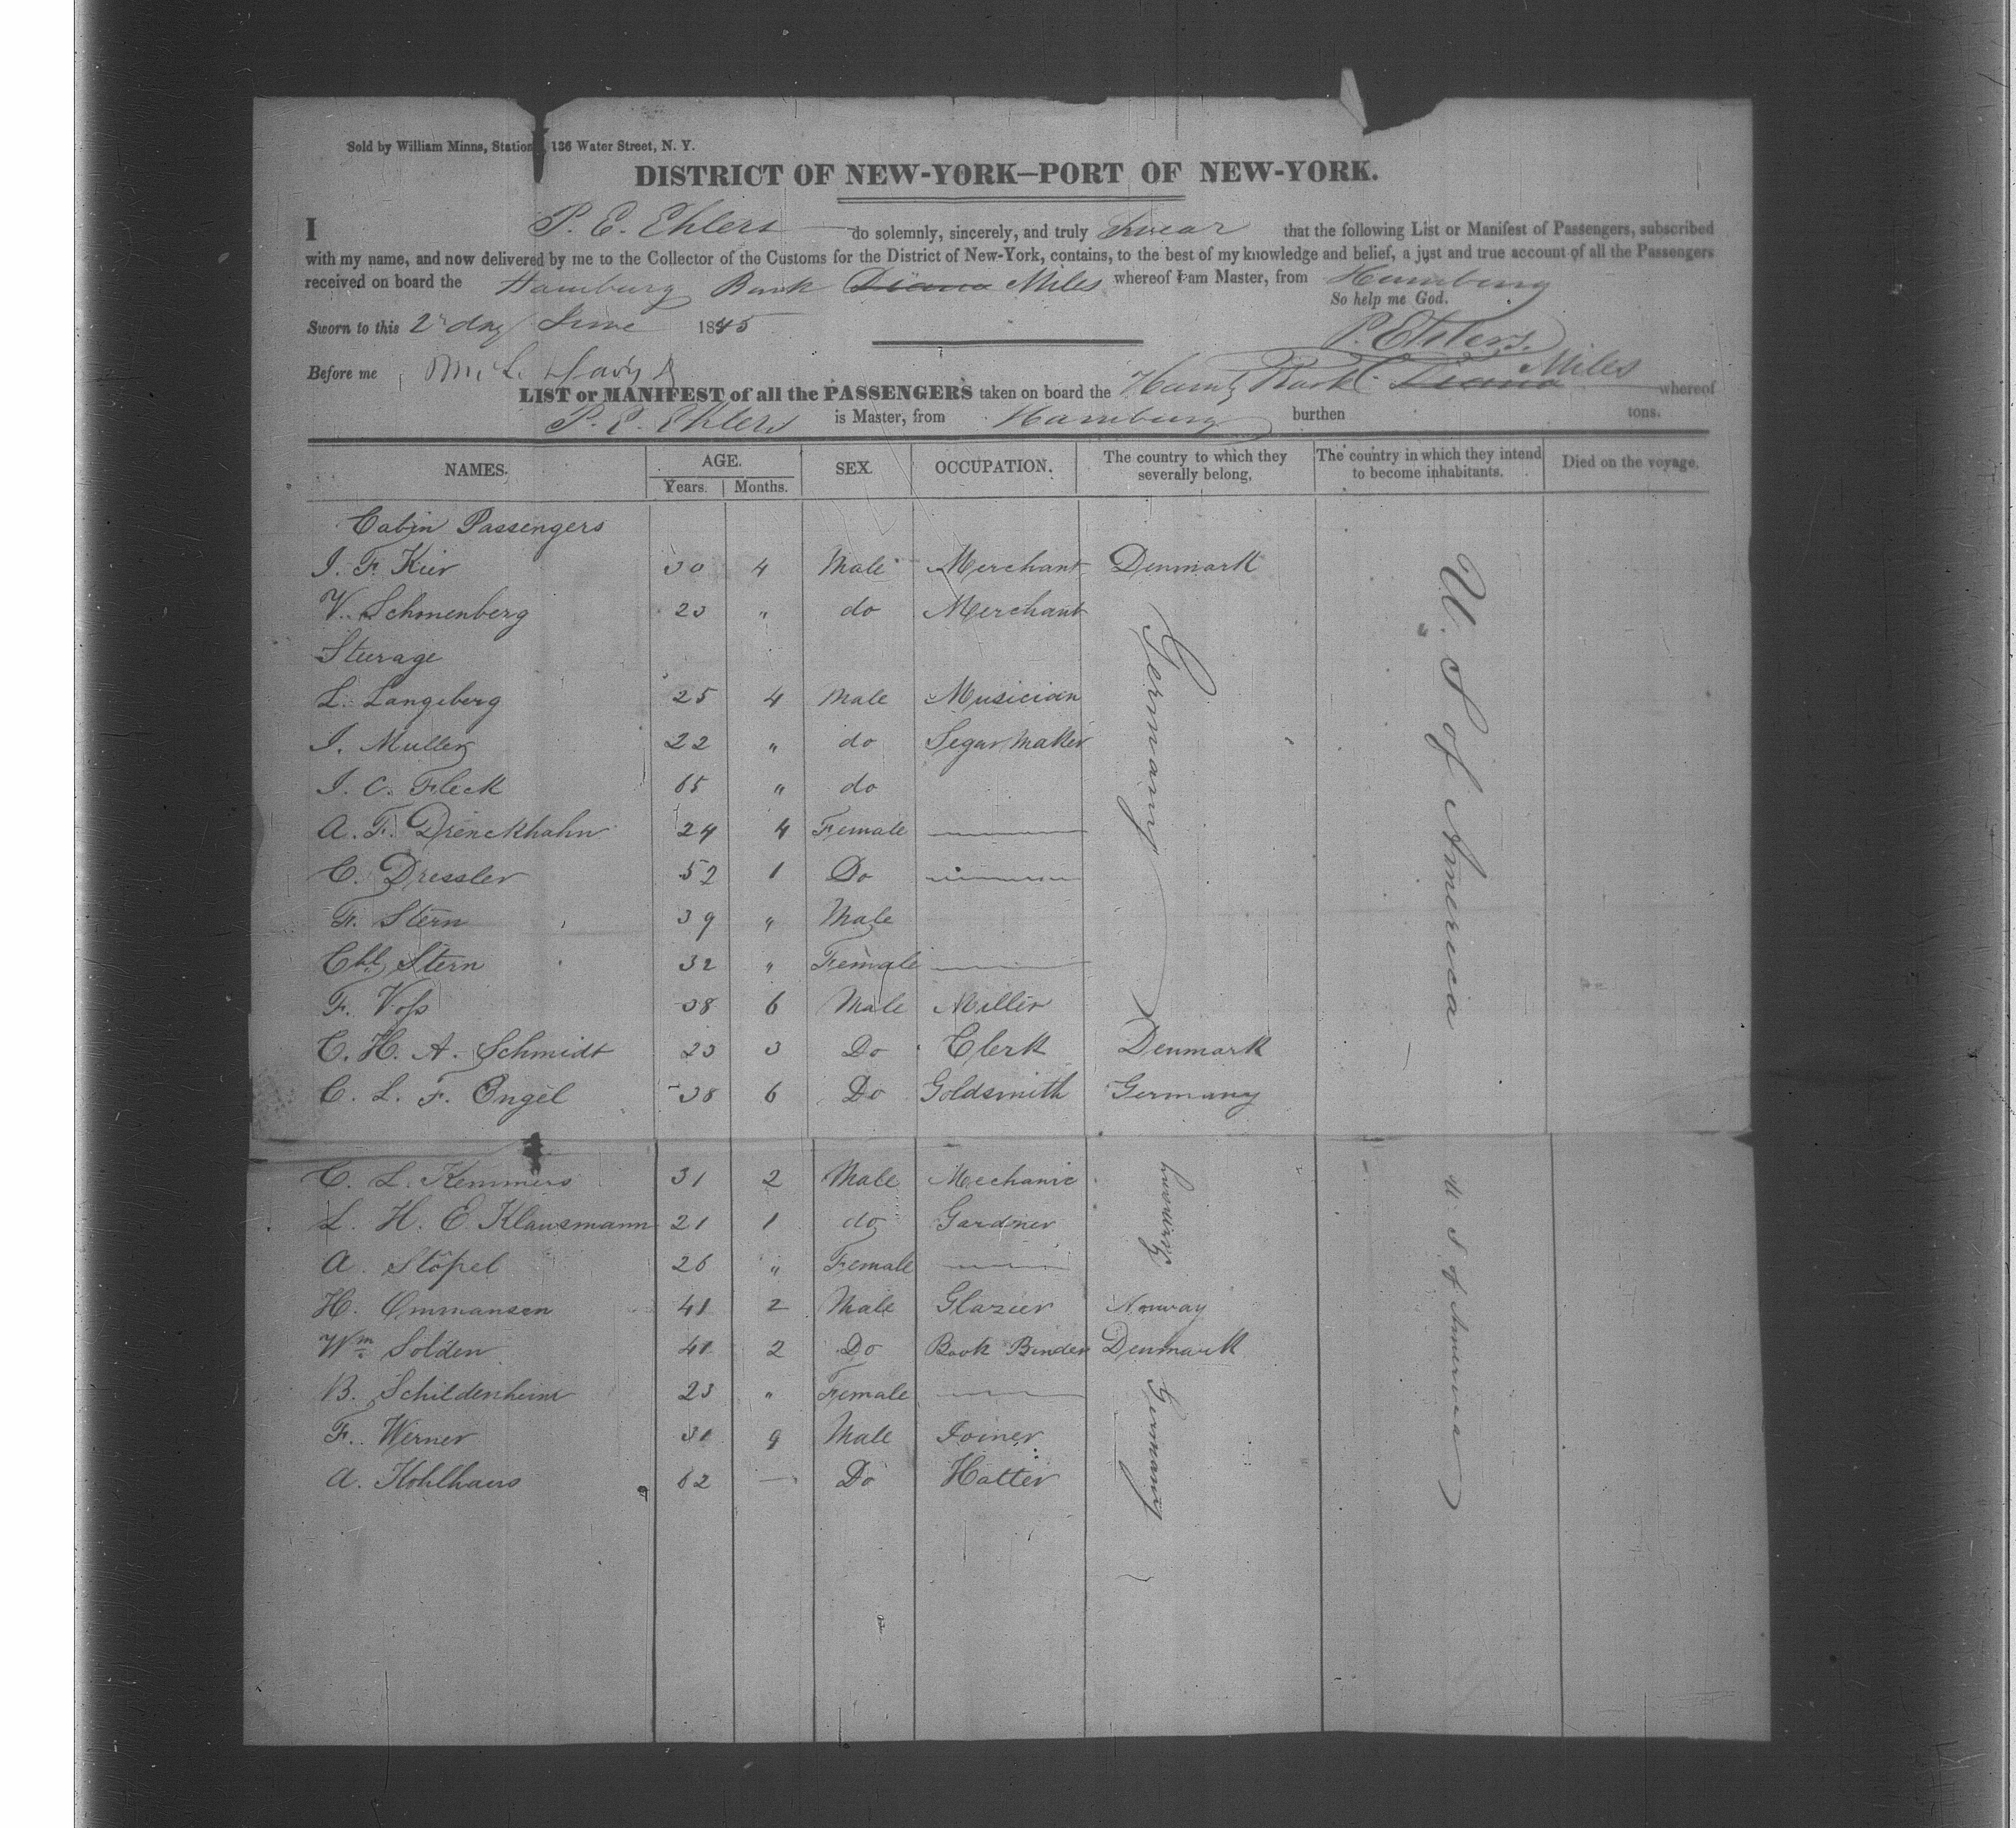 Sold by William Minns, Station 136 Water Street, N. Y.
DISTRICT OF NEW-YORK—PORT OF NEW-YORK.
I P. E. Ehlers do solemnly, sincerely, and truly Swear that the following List or Manifest of Passengers, subscribed
with my name, and now delivered by me to the Collector of the Customs for the District of New-York, contains, to the best of my knowledge and belief, a just and true account of all the Passengers
received on board the Hamburg Bark Diana Miles whereof I am Master, from Hamburg
So help me God.
Sworn to this 2 day June 1845
P. Ehlers.
Before me
LIST or MANIFEST of all the PASSENGERS taken on board the Hamb Bark Diana Miles whereof
P. E. Ehlers is Master, from Hamburg burthen tons.
NAMES. AGE. Years. Months. SEX. OCCUPATION. The country to which they severally belong, The country in which they intend to become inhabitants. Died on the voyage.
Cabin Passengers
I. F. Kier 30 4 Male Merchant Denmark U. S of America
V. Schonenberg 23 " do Merchant Germany
Sturage
L. Langeberg 25 4 Male Musician
I. Muller 22 " do Segar Maker
I. C. Fleck 65 " do
A. F. Drenckhahn 24 4 Female
C. Dressler 52 1 Do
F. Stern 39 " Male
Chl Stern 32 " Female
F. Voss 38 6 Male Miller
C. H. A. Schmidt 23 3 Do Clerk Denmark
C. L. F. Engel 38 6 Do Goldsmith Germany
C. L. Kemmers 31 2 Male Mechanic Germany U. S of America
L. H. E. Klausmann 21 1 do Gardner
A. Stöpel 26 " Female
H. Ommansen 41 2 Male Glazier Norway
Wm Solden 41 2 Do Book Binder Denmark
B. Schildenheim 23 " Female Germany
F. Werner 31 9 Male Joiner
A. Kohlhaus 62 — Do Hatter